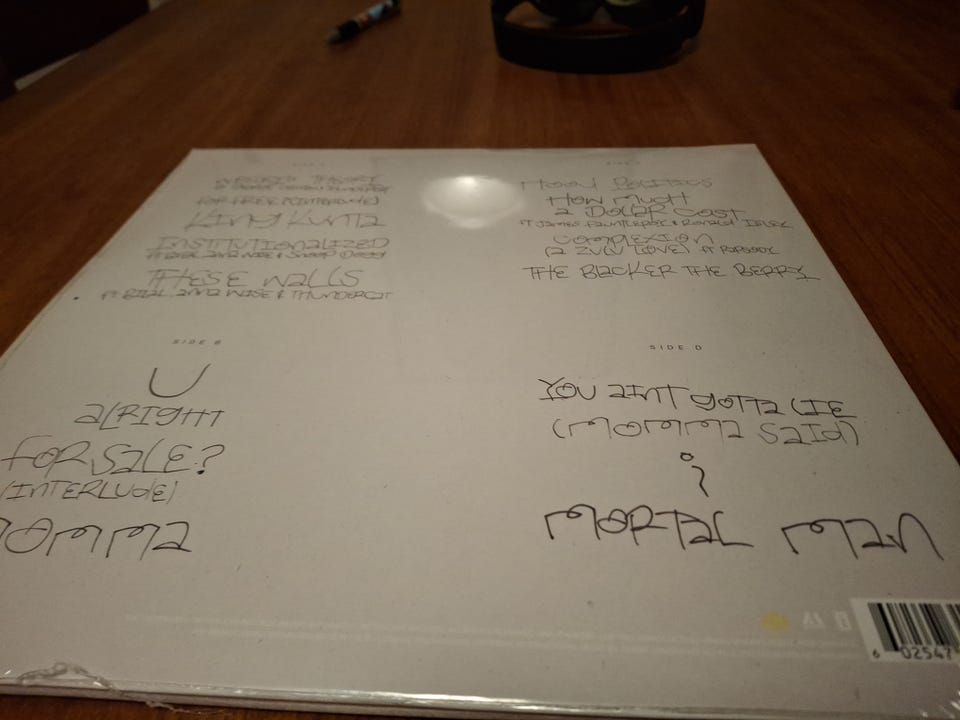 SIDE A
WESLEY'S THEORY
FOR FREE? (INTERLUDE)
KING KUNTA
INSTITUTIONALIZED
FT BILAL, ANNA WISE & SNOOP DOGG
THESE WALLS
FT BILAL, ANNA WISE & THUNDERCAT
SIDE B
U
ALRIGHT
FOR SALE?
(INTERLUDE)
MOMMA
SIDE C
HOOD POLITICS
HOW MUCH
A DOLLAR COST
FT JAMES FAUNTLEROY & RONALD ISLEY
COMPLEXION
(A ZULU LOVE) FT RAPSODY
THE BLACKER THE BERRY
SIDE D
YOU AINT GOTTA LIE
(MOMMA SAID)
i
MORTAL MAN
6 02547